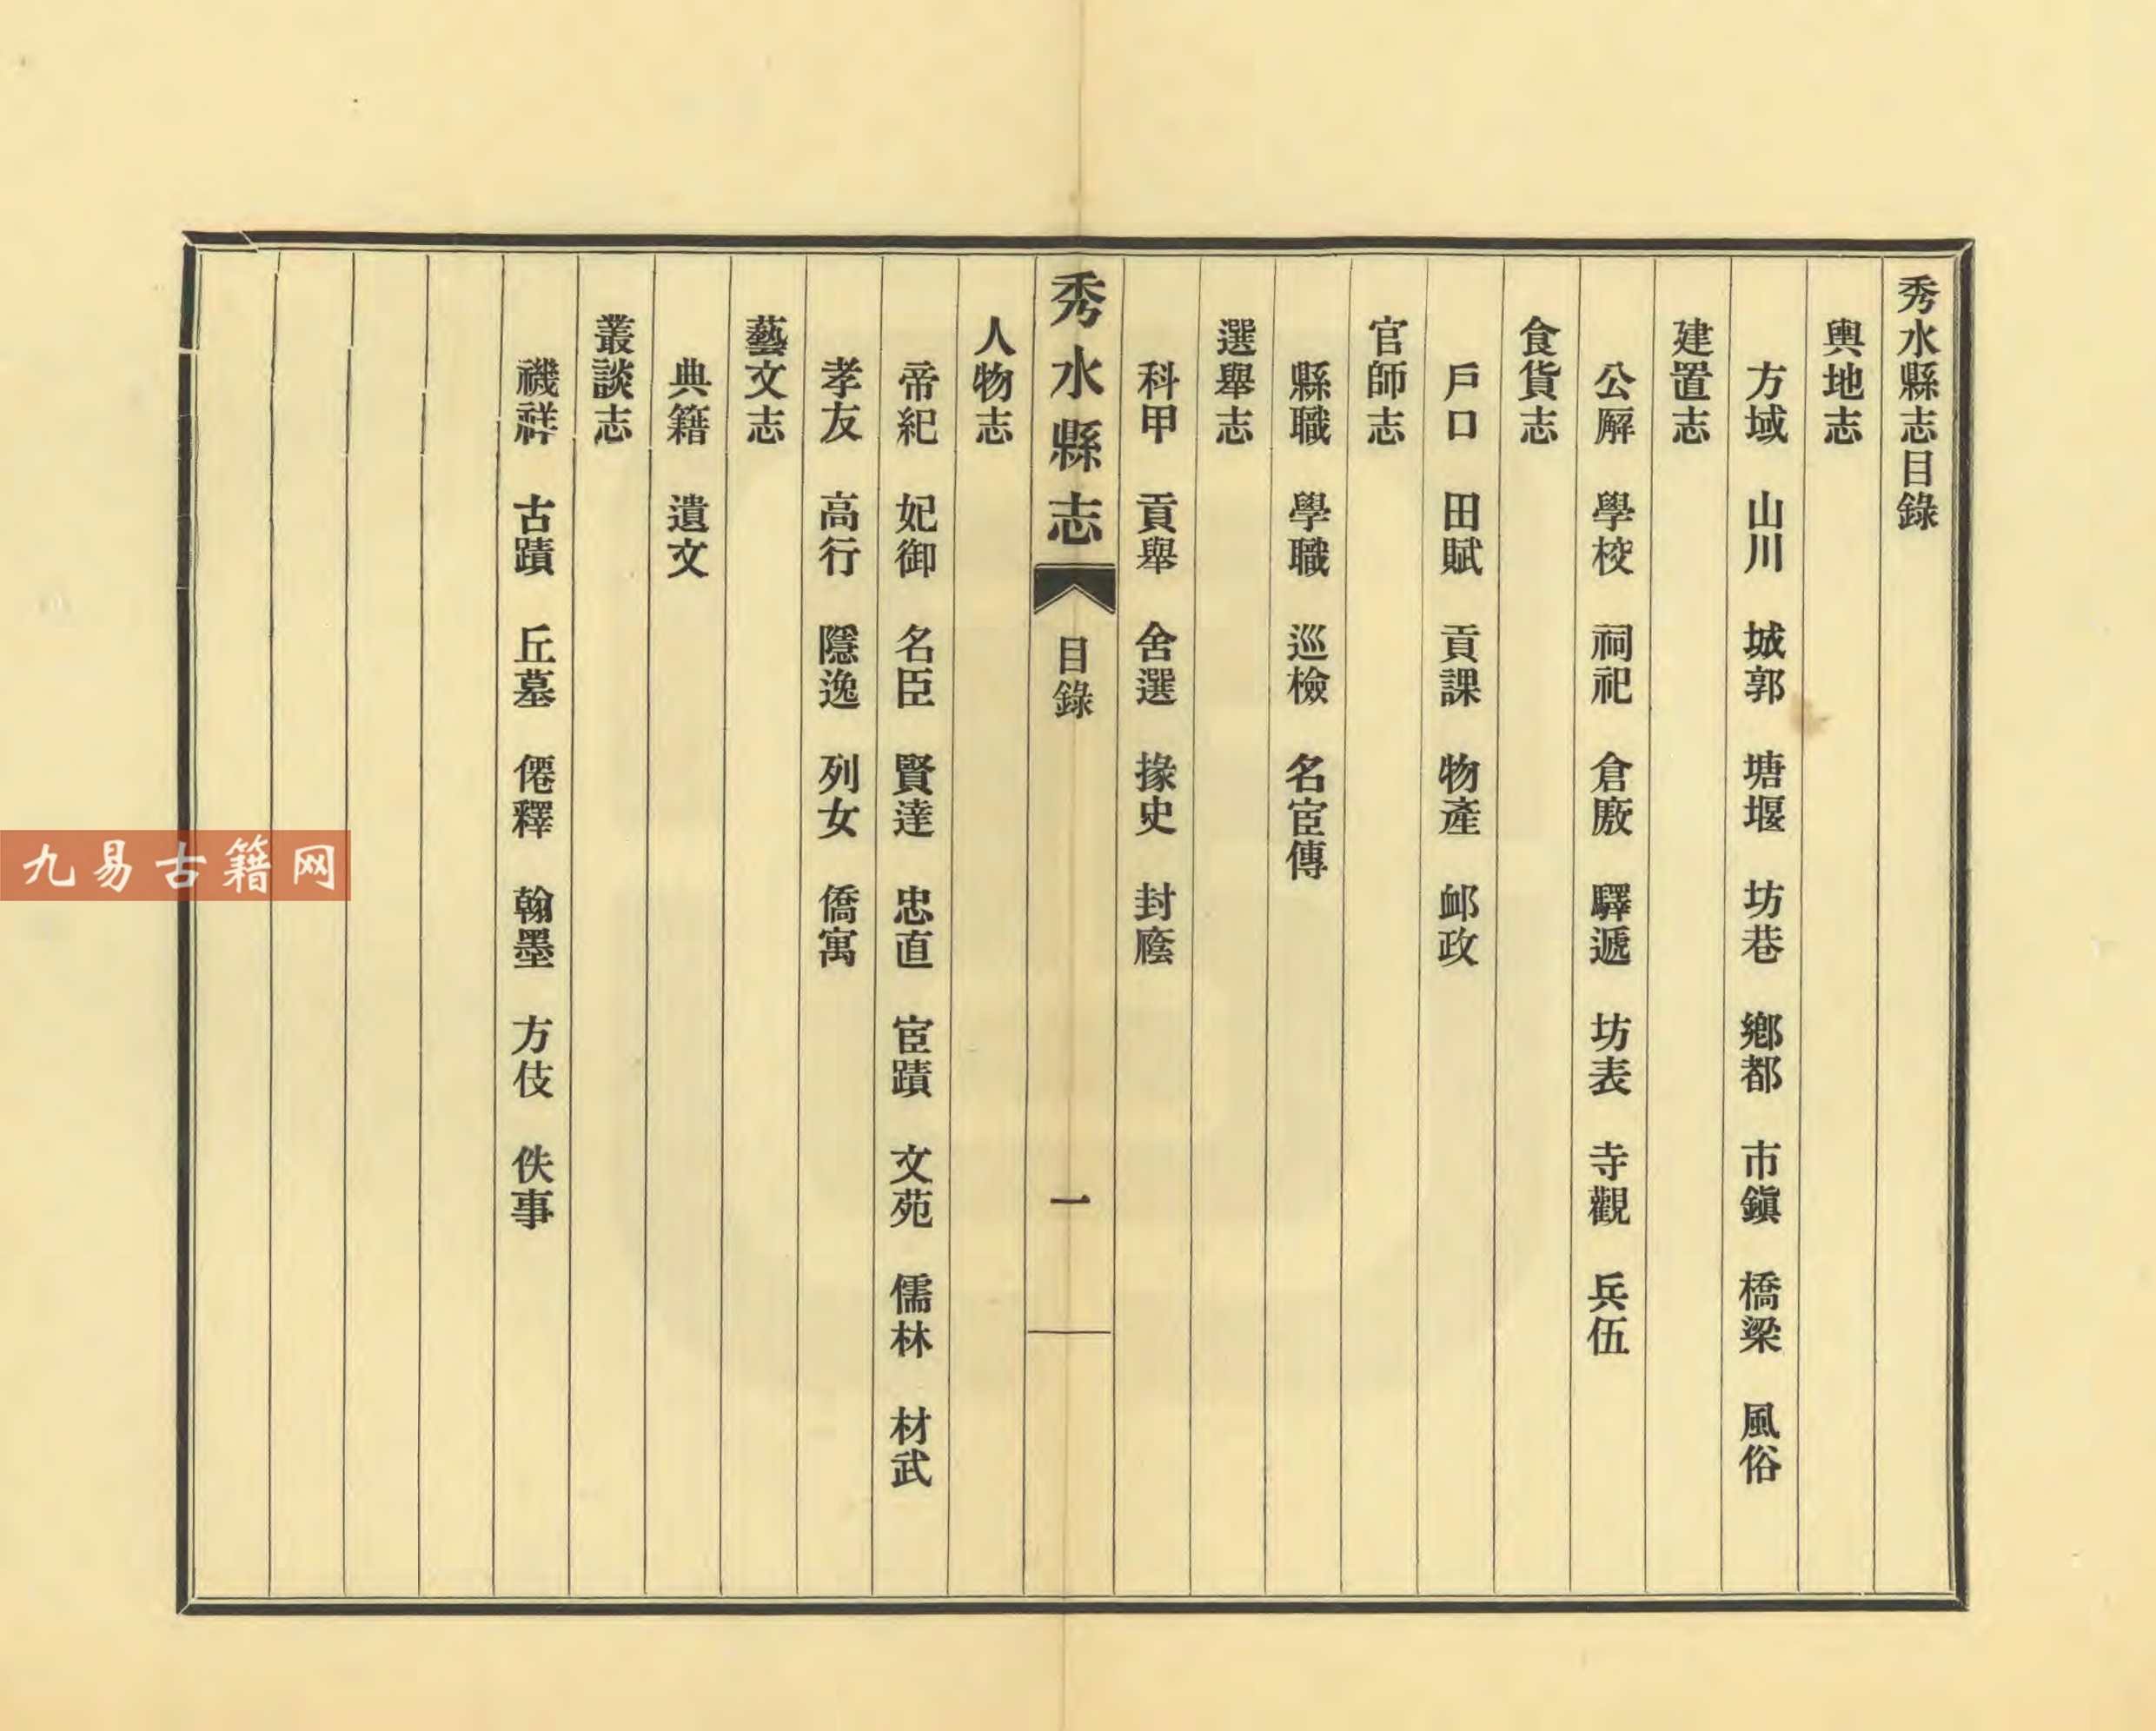 秀水縣志目錄
輿地志
方域　山川　城郭　塘堰　坊巷　鄉都　市鎭　橋梁　風俗
建置志
公廨　學校　祠祀　倉廒　驛遞　坊表　寺觀　兵伍
食貨志
戶口　田賦　貢課　物產　卹政
官師志
縣職　學職　巡檢　名宦傳
選舉志
科甲　貢舉　舍選　掾史　封廕
秀水縣志　目錄　一
人物志
帝紀　妃御　名臣　賢達　忠直　宦蹟　文苑　儒林　材武
孝友　高行　隱逸　列女　僑寓
藝文志
典籍　遺文
叢談志
禨祥　古蹟　丘墓　僊釋　翰墨　方伎　佚事
九易古籍网